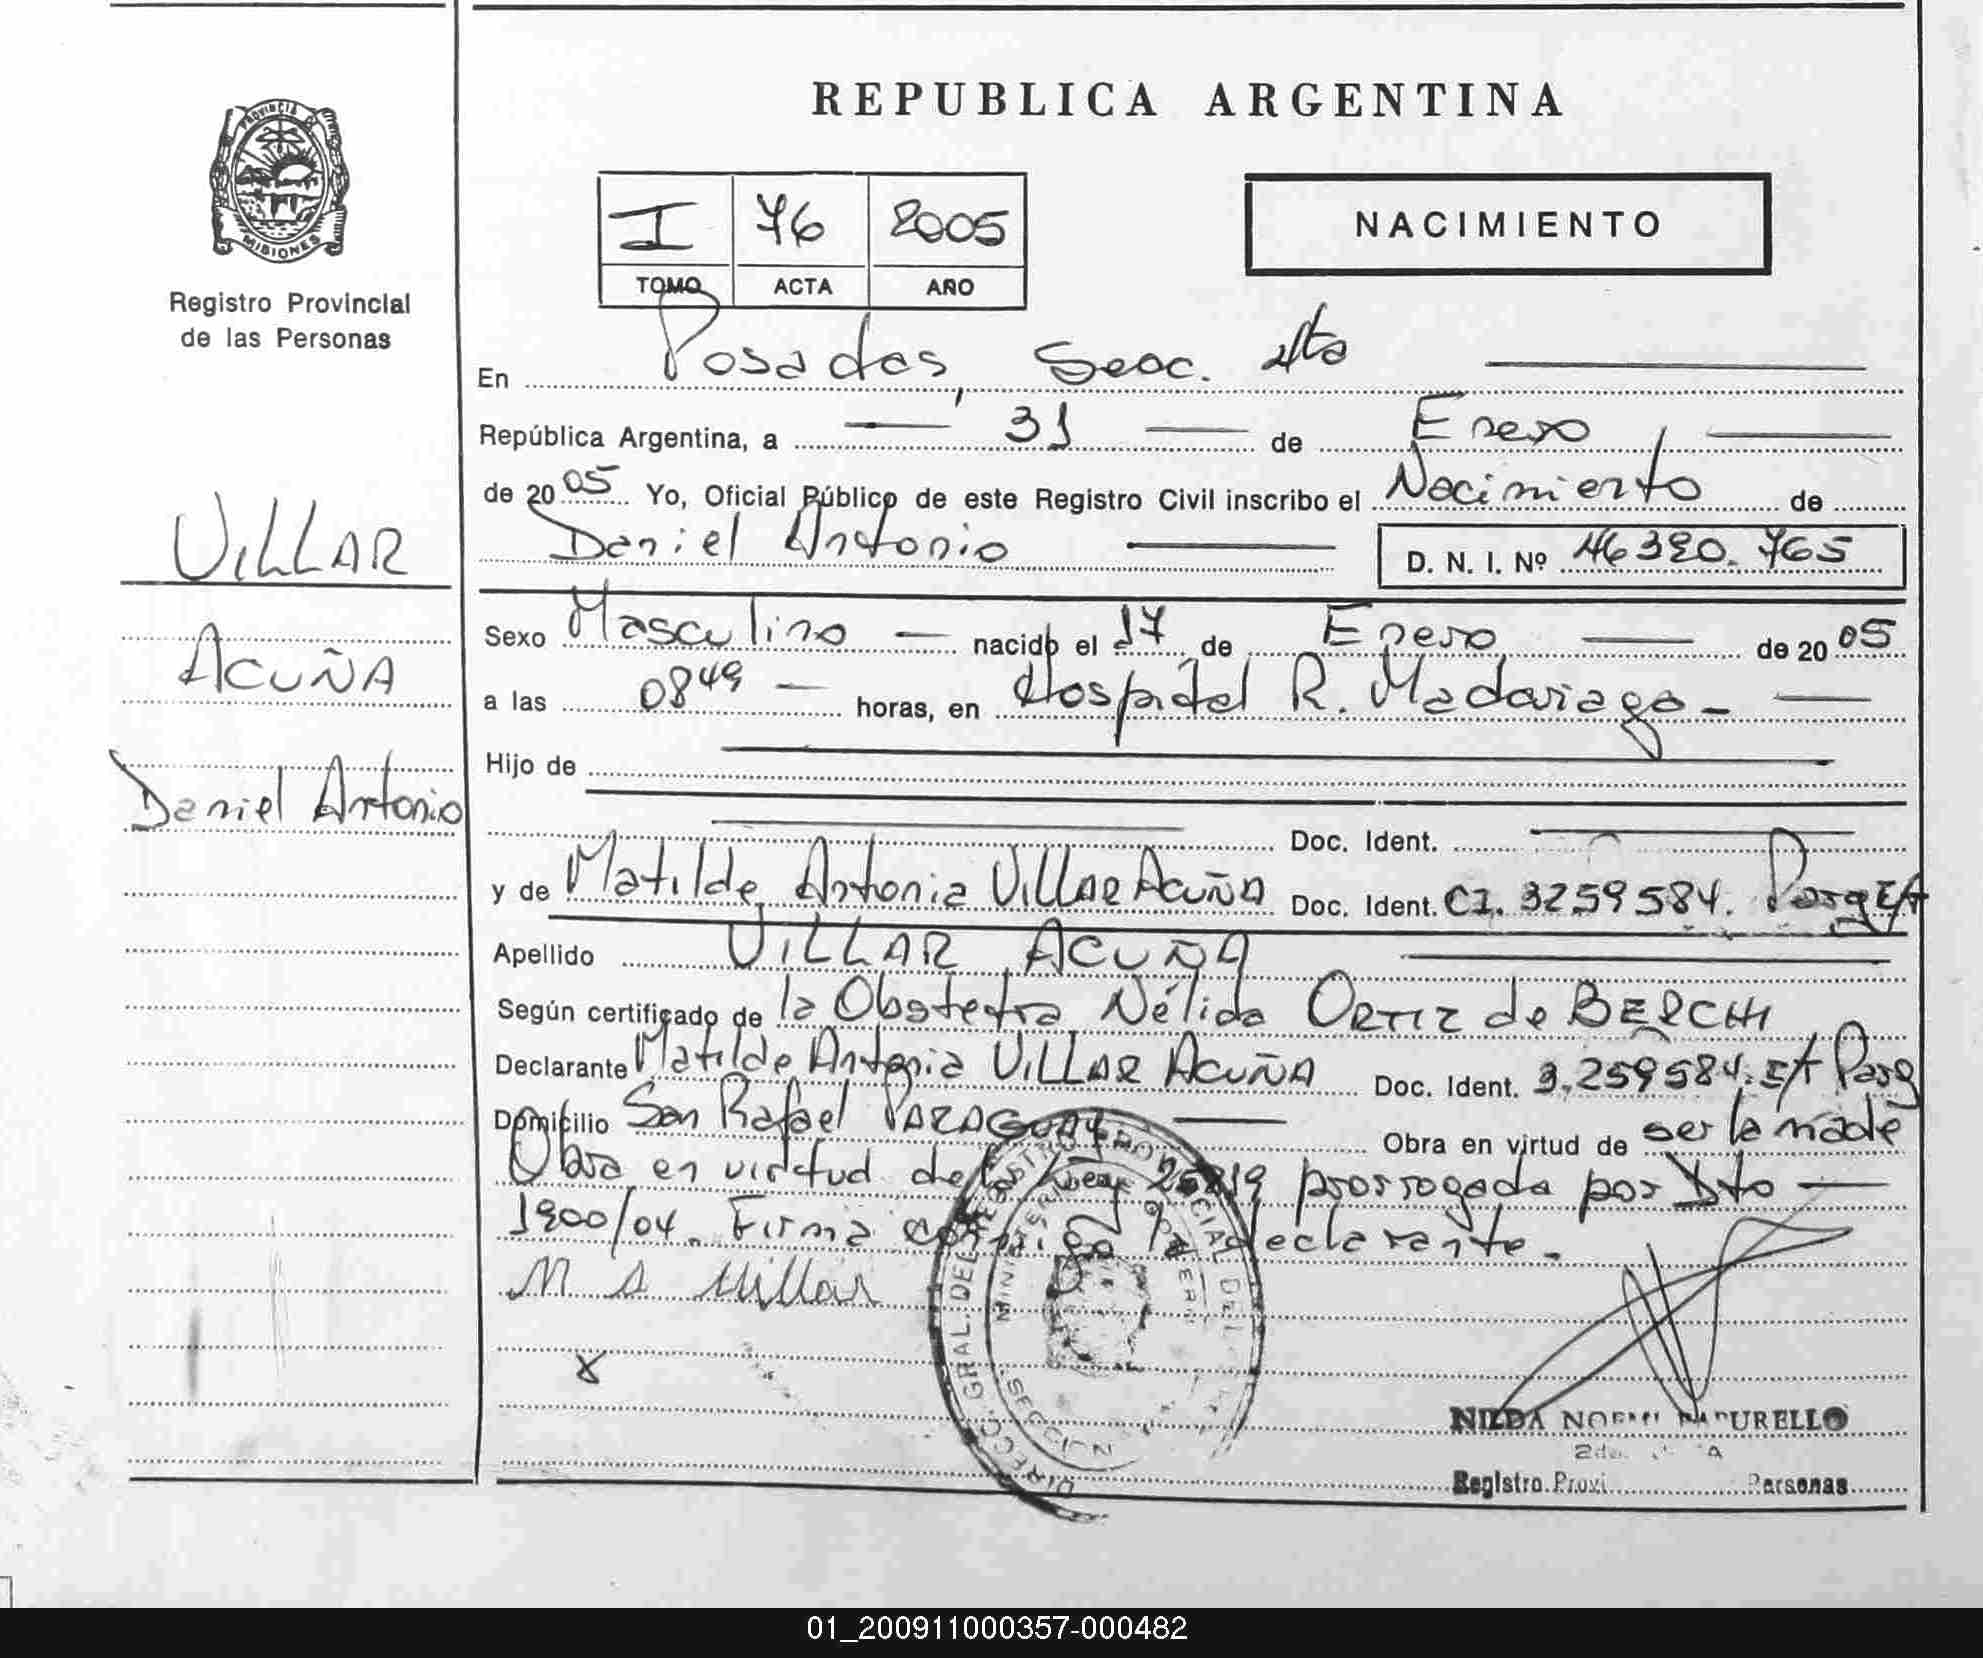 REPUBLICA ARGENTINA
PROVINCIA DE
MISIONES
Registro Provincial
de las Personas
I 76 2005
TOMO ACTA AÑO
NACIMIENTO
VILLAR
ACUÑA
Daniel Antonio
En Posadas, Secc. 4ta
República Argentina, a 31 de Enero
de 2005 Yo, Oficial Público de este Registro Civil inscribo el Nacimiento de
Daniel Antonio D. N. I. Nº 46390.765
Sexo Masculino nacido el 17 de Enero de 2005
a las 0849 horas, en Hospital R. Madariaga
Hijo de
Doc. Ident.
y de Matilde Antonia VILLAR ACUÑA Doc. Ident. CI. 3259584.
Apellido VILLAR ACUÑA
Según certificado de la Obstetra Nélida ORTIZ de BERCHI
Declarante Matilde Antonia VILLAR ACUÑA Doc. Ident. 3.259584.
Domicilio San Rafael PARAGUAY Obra en virtud de ser la madre
Obra en virtud de la Ley 25819 prorrogada por Dto
1900/04. Firma conmigo la declarante.
M A Villar
DIRECC. GRAL. DEL REGISTRO PROVINCIAL DE
SECCION
NILDA NOEMI
Registro Personas
01_200911000357-000482